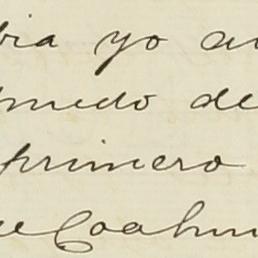 bia yo au
puedo de
primero
e Coahu